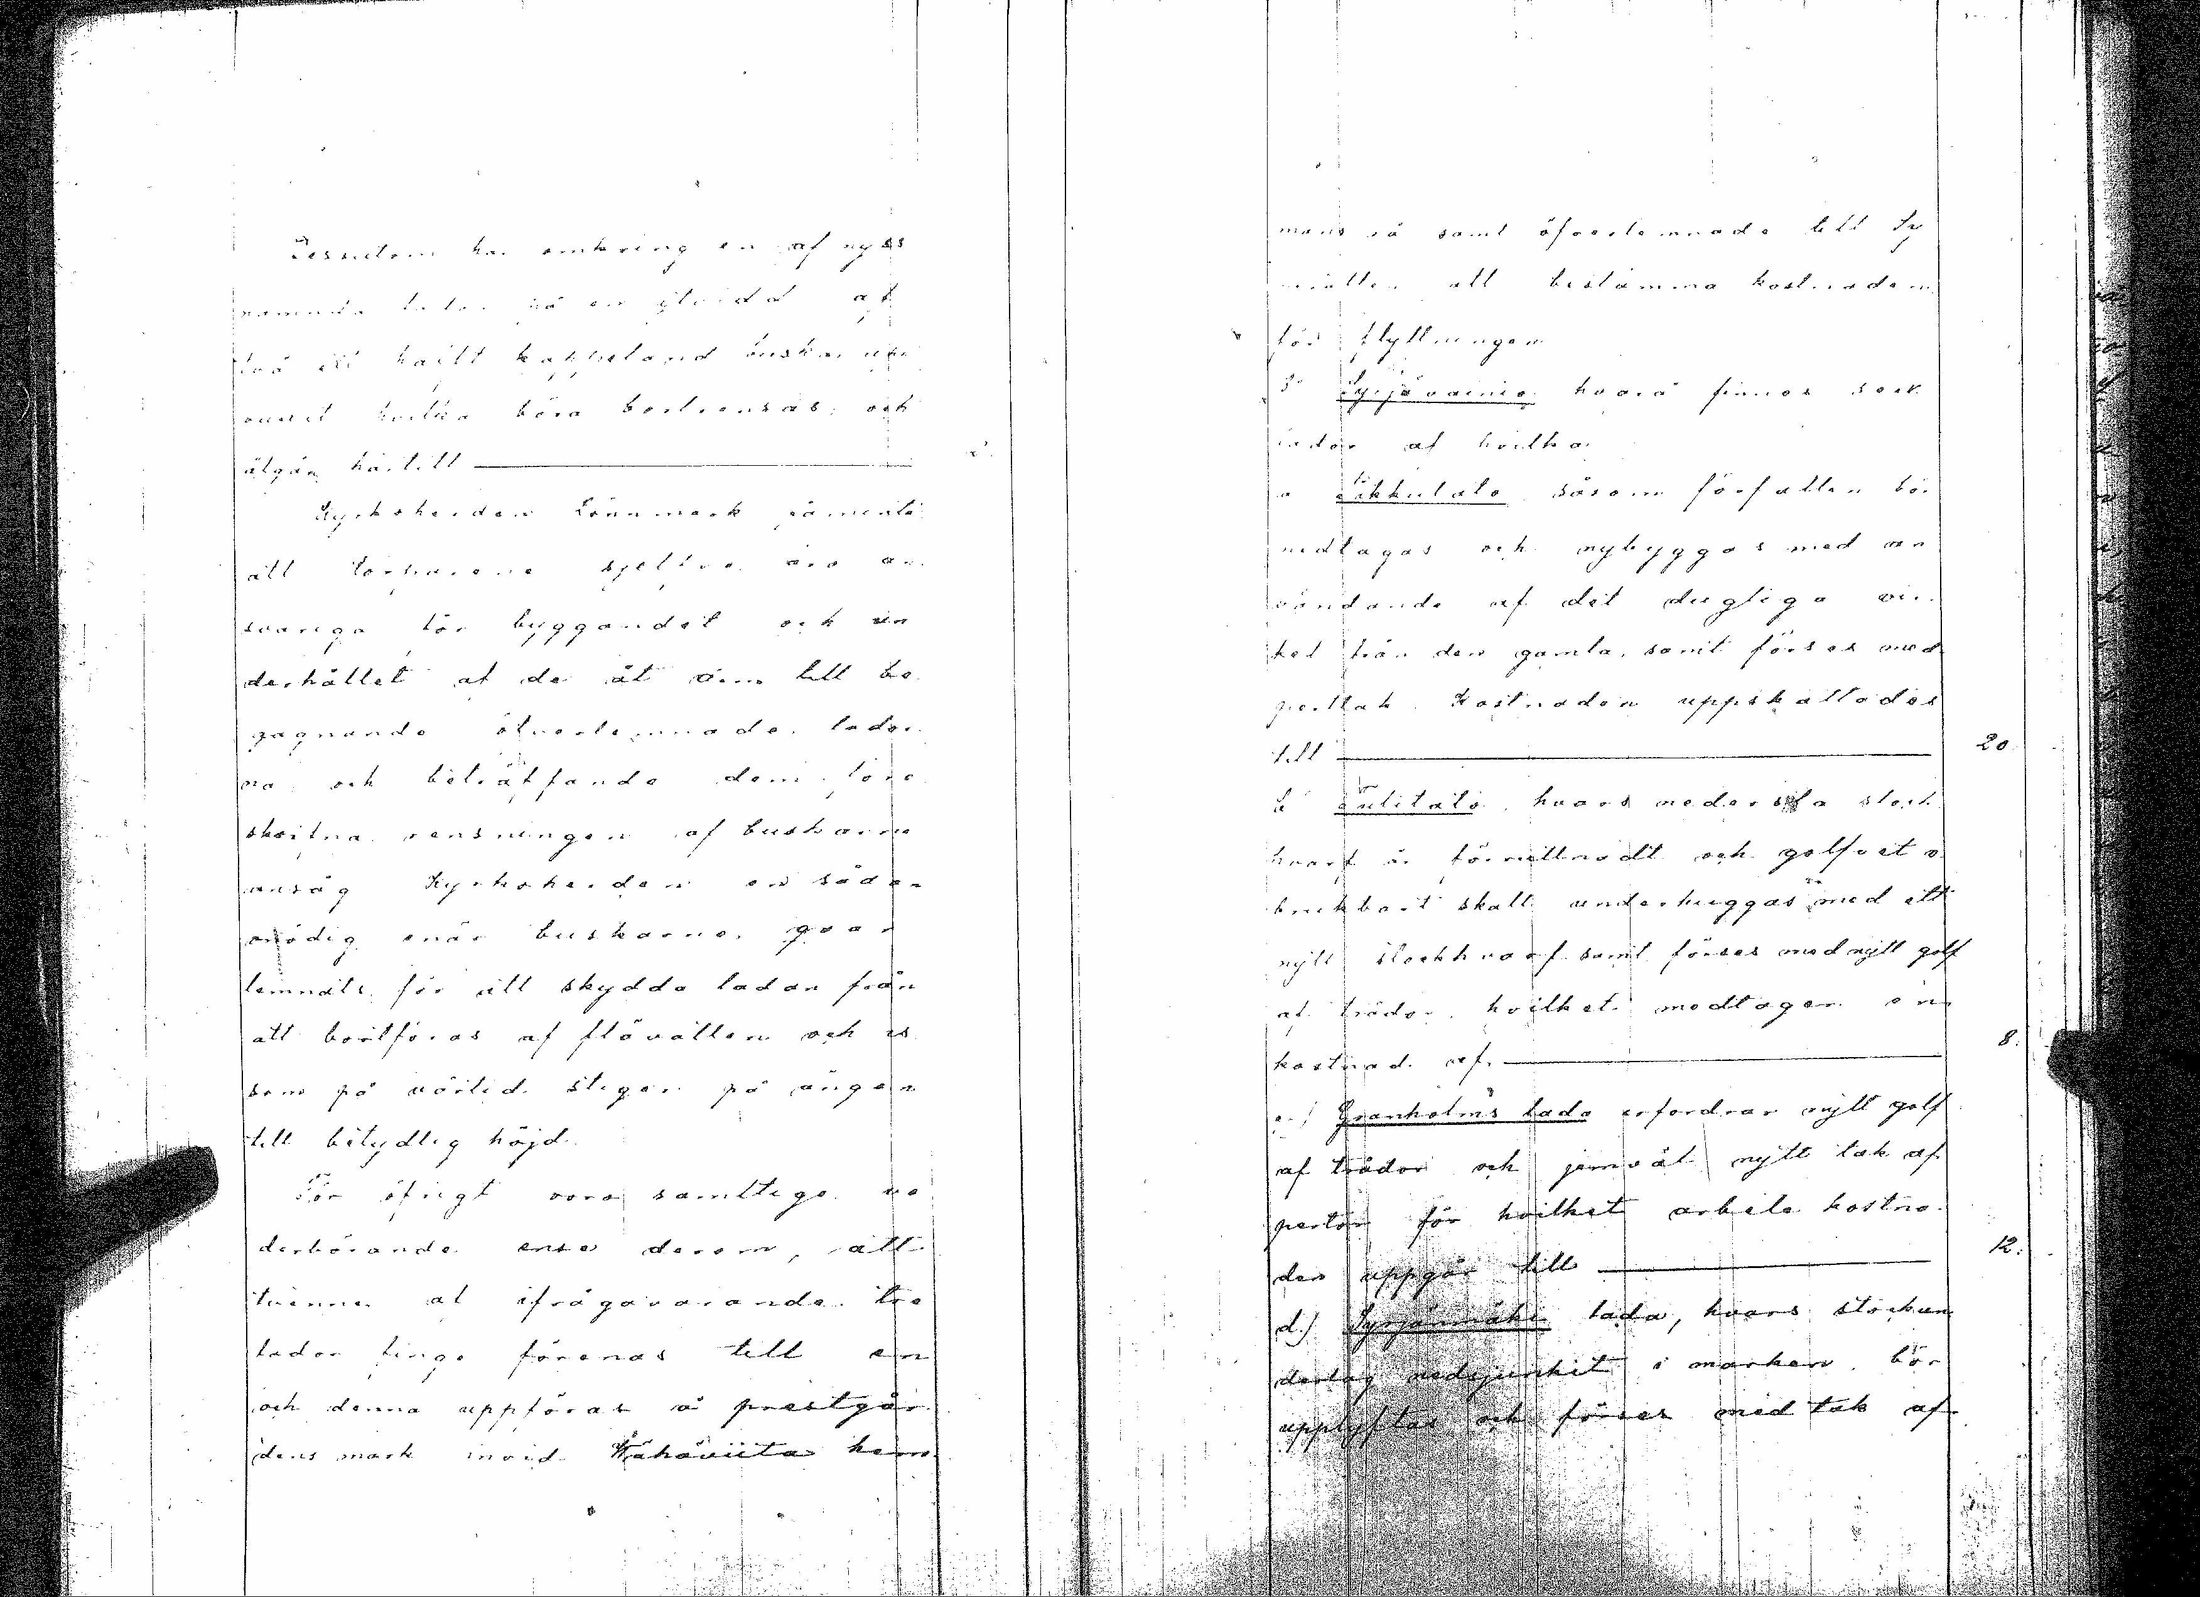 Dessutom har omkring en af nyss
nämnda lador på en ytvidd af
två ett halft kappeland buskar upp
vuxit hvilka böra bortrensas och
åtgår härtill — 2.
Kyrkoherden Lönnmark påminte
att torparene sjelfva äro an
svariga för byggandet och un
derhållet af de åt dem till be
gagnande öfverlemnade lador
na och beträffande dem före
skrifna rensningen af buskarne
ansåg Kyrkoherden en sådan
onödig enär buskarne qvar
lemnats för att skydda ladan från
att bortföras af flövatten och is
som på vårtid stiger på ängen
till betydlig höjd.
För öfrigt voro samtliga ve
derbörande ense derom, att
tvenne af ifrågavarande tre
lador finge förenas till en
och denna uppföras å prestgår
dens mark invid Wähäviita hem
mans rå samt öfverlemnade till Sy
nerätten att bestämma kostnaden
för flyttningen
3 Syrjävainio hvarå finnes sex
lador af hvilka
a såsom förfallen bör
nedtagas och nybyggas med an
vändande af det dugliga vir
ket från den gamla, samt förses med
perttak. Kostnaden uppskattades
till — 20
b hvars nedersta stock
hvarf är förruttnadt och golfvet o
brukbart skall underhuggas med ett
nytt stockhvarf samt förses med nytt golf
af trädor, hvilket medtager en
kostnad af — 8.
c.) Granholms lada erfordrar nytt golf
af trädor och jemväl nytt tak af
pertor för hvilket arbete kostna
den uppgår till — 12.
d.) Syrjänmäki lada, hvars stockun
derlag nedsjunkit i marken, bör
upplyftas och förses med tak af